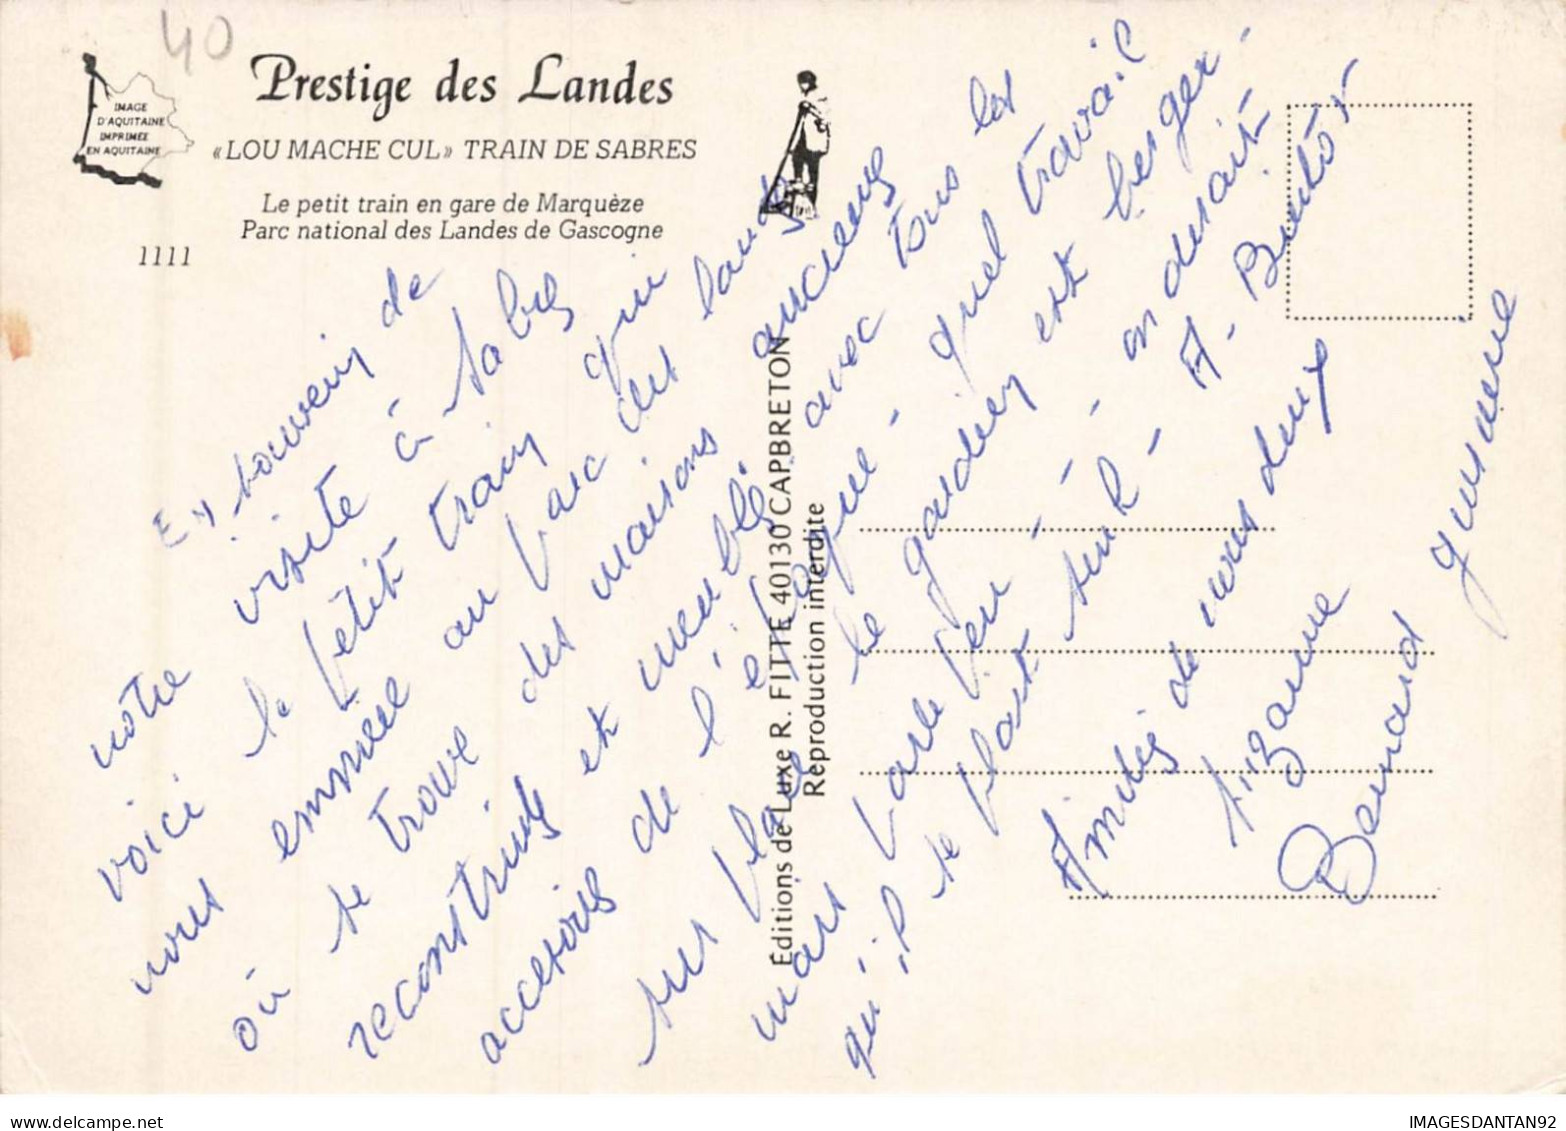 40
IMAGE
D'AQUITAINE
IMPRIMÉE
EN AQUITAINE
Prestige des Landes
«LOU MACHE CUL» TRAIN DE SABRES
Le petit train en gare de Marquèze
Parc national des Landes de Gascogne
1111
En souvenir de
notre visite à Sabres
voici le petit train qui
nous emmène au parc des landes
où se trouve des maisons anciennes
reconstruites et meublés avec tous les
accessoires de l'époque - quel travail
sur place le gardien est berger -
mais parle peu - - on dirait
qu'il se plait seul - A - Bientôt
Amitiés de nous deux
Suzanne
Bernard
Éditions de Luxe R. FITTE 40130 CAPBRETON
Reproduction interdite
IMAGESDANTAN92